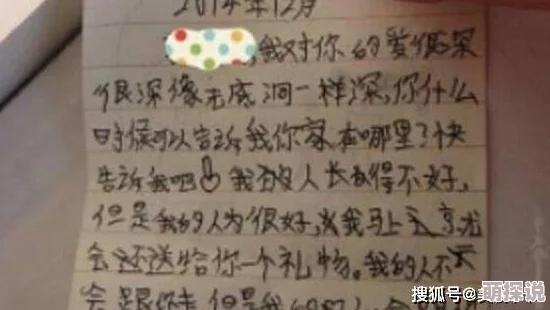 2014年12月
,我对你的爱很深
很深像无底洞一样深,你什么
时候可以告诉我你家在哪里了快
告诉我吧 我的人长得不好,
但是我的人为很好,我马上
会还送给你一个礼物。我的人不
会跟你走 但是我的
搜狐号@美
萌探说